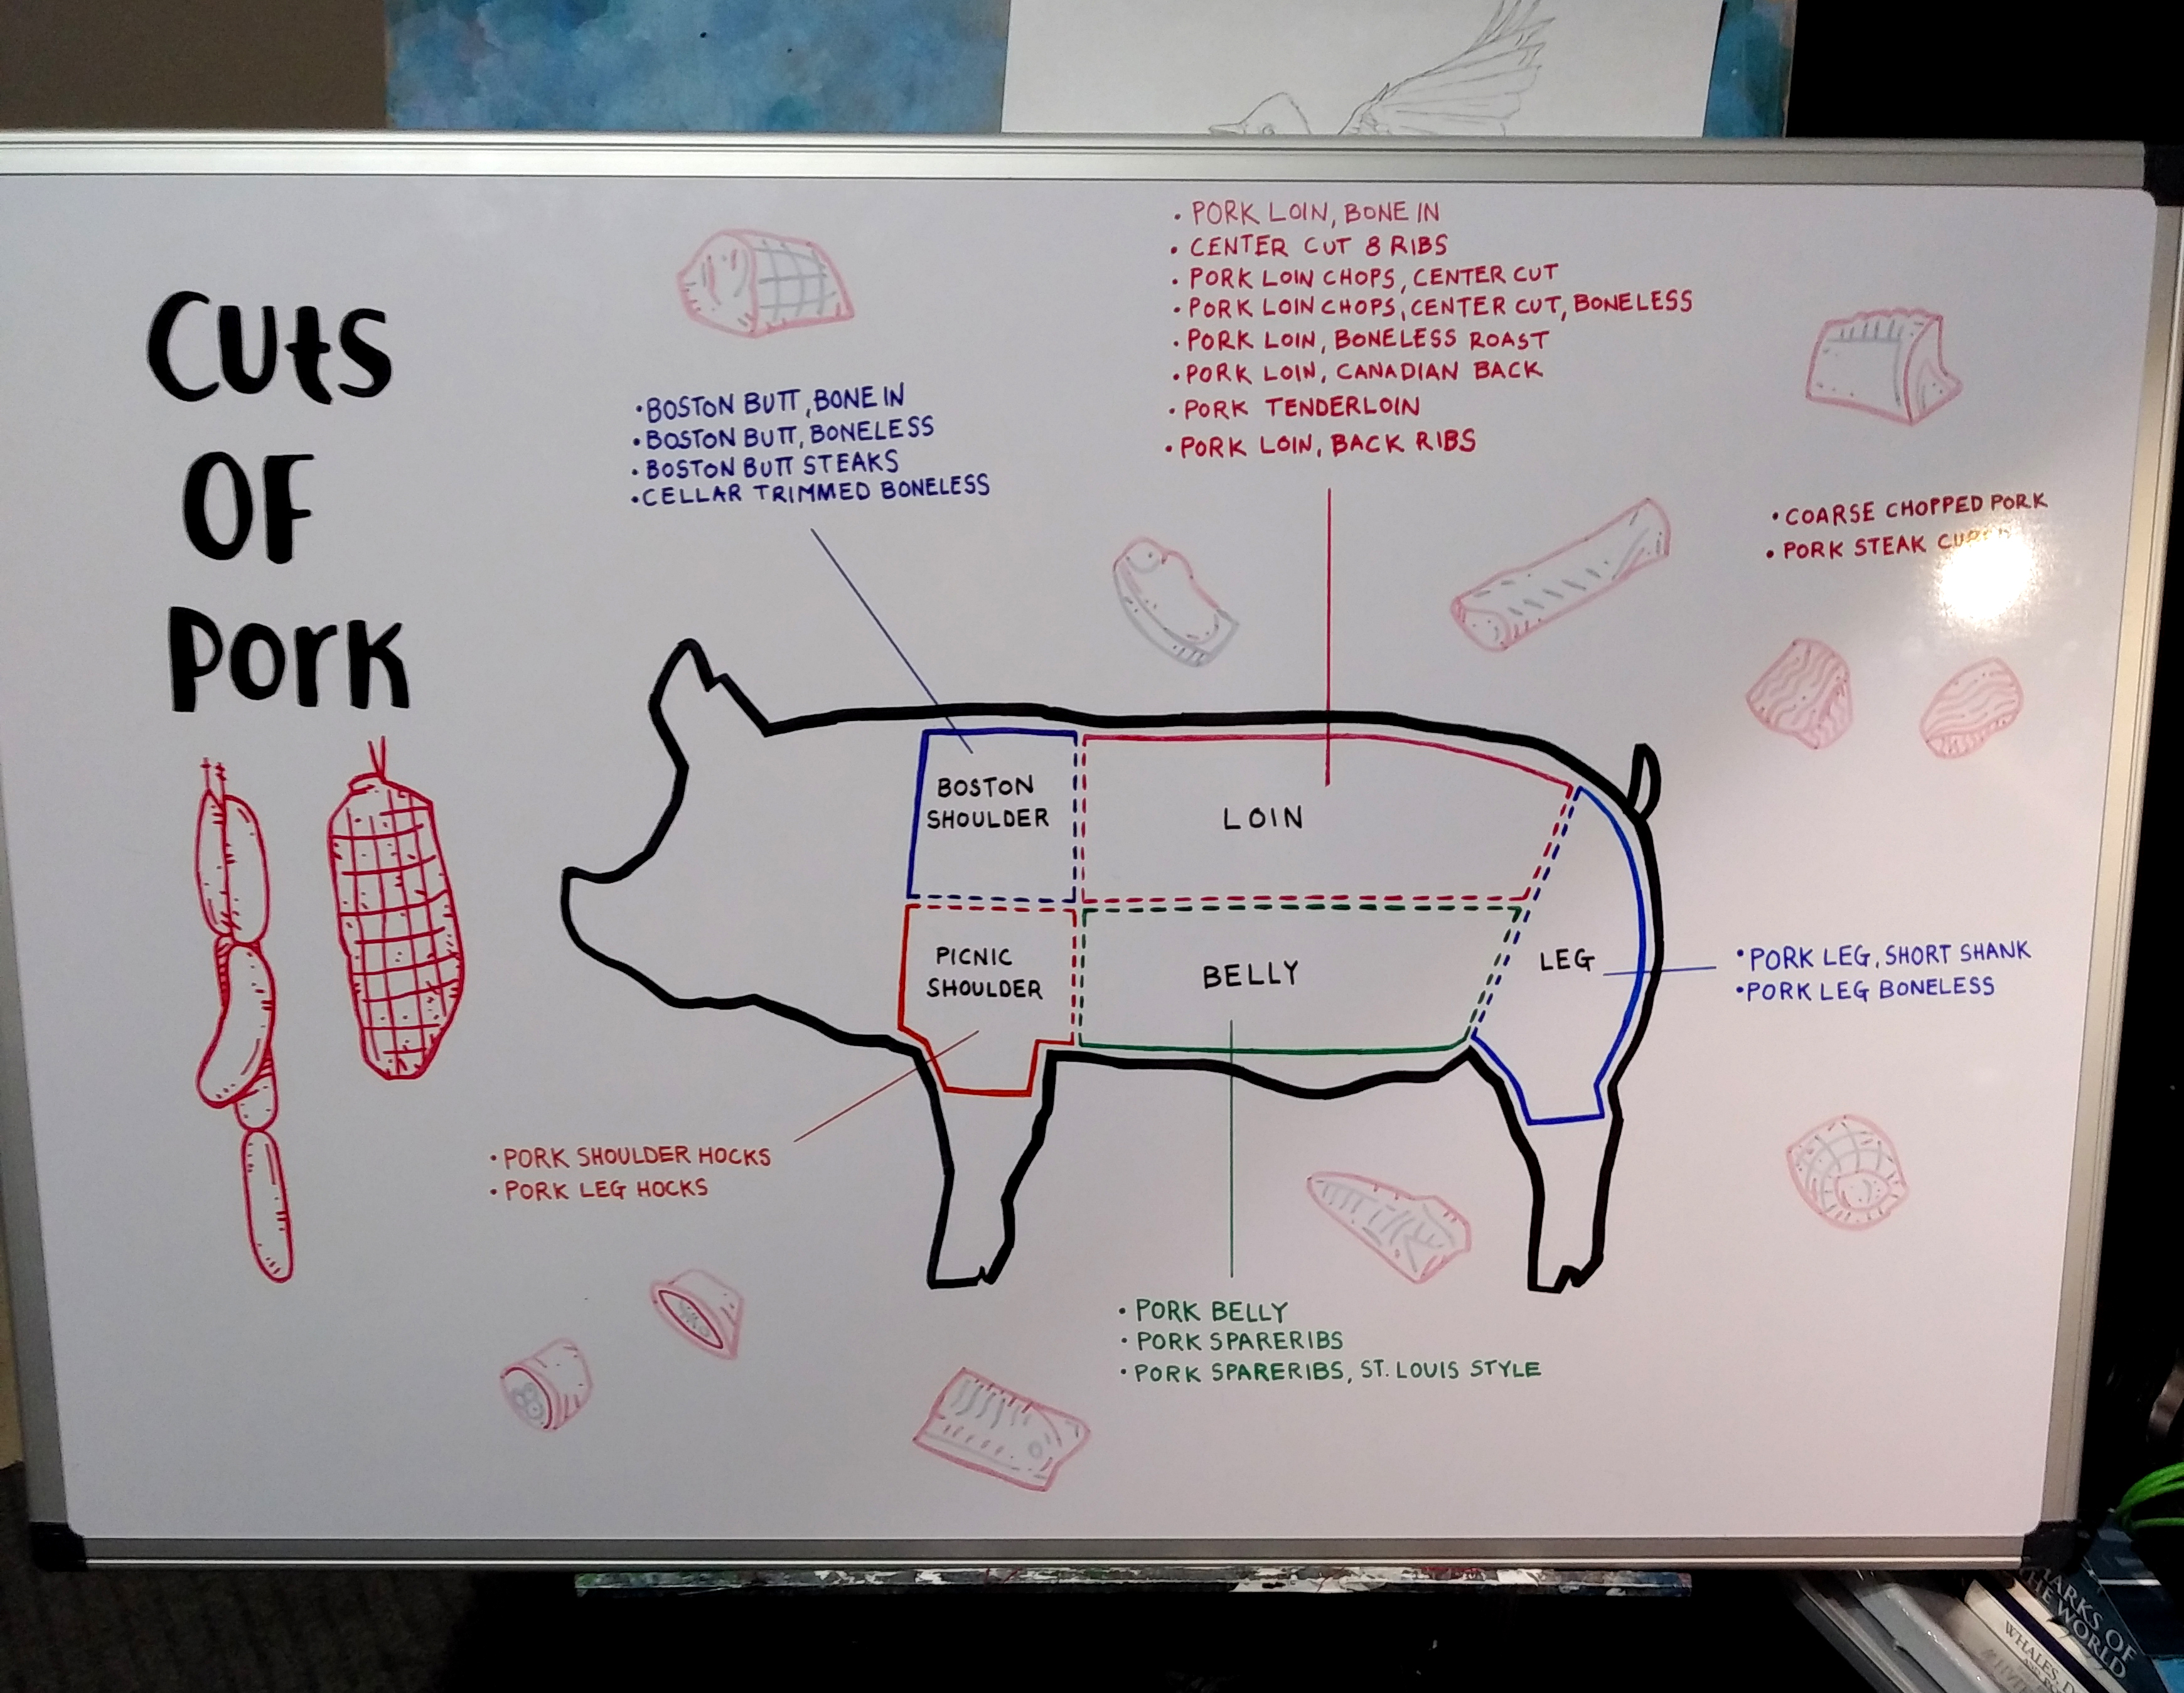 Cuts
OF
Pork
• BOSTON BUTT, BONE IN
• BOSTON BUTT, BONELESS
• BOSTON BUTT STEAKS
• CELLAR TRIMMED BONELESS
• PORK LOIN, BONE IN
• CENTER CUT 8 RIBS
• PORK LOIN CHOPS, CENTER CUT
• PORK LOIN CHOPS, CENTER CUT, BONELESS
• PORK LOIN, BONELESS ROAST
• PORK LOIN, CANADIAN BACK
• PORK TENDERLOIN
• PORK LOIN, BACK RIBS
• COARSE CHOPPED PORK
• PORK STEAK
BOSTON
SHOULDER
LOIN
PICNIC
SHOULDER
BELLY
LEG
• PORK LEG, SHORT SHANK
• PORK LEG BONELESS
• PORK SHOULDER HOCKS
• PORK LEG HOCKS
• PORK BELLY
• PORK SPARERIBS
• PORK SPARERIBS, ST. LOUIS STYLE
OF
THE WORLD
WHALES,